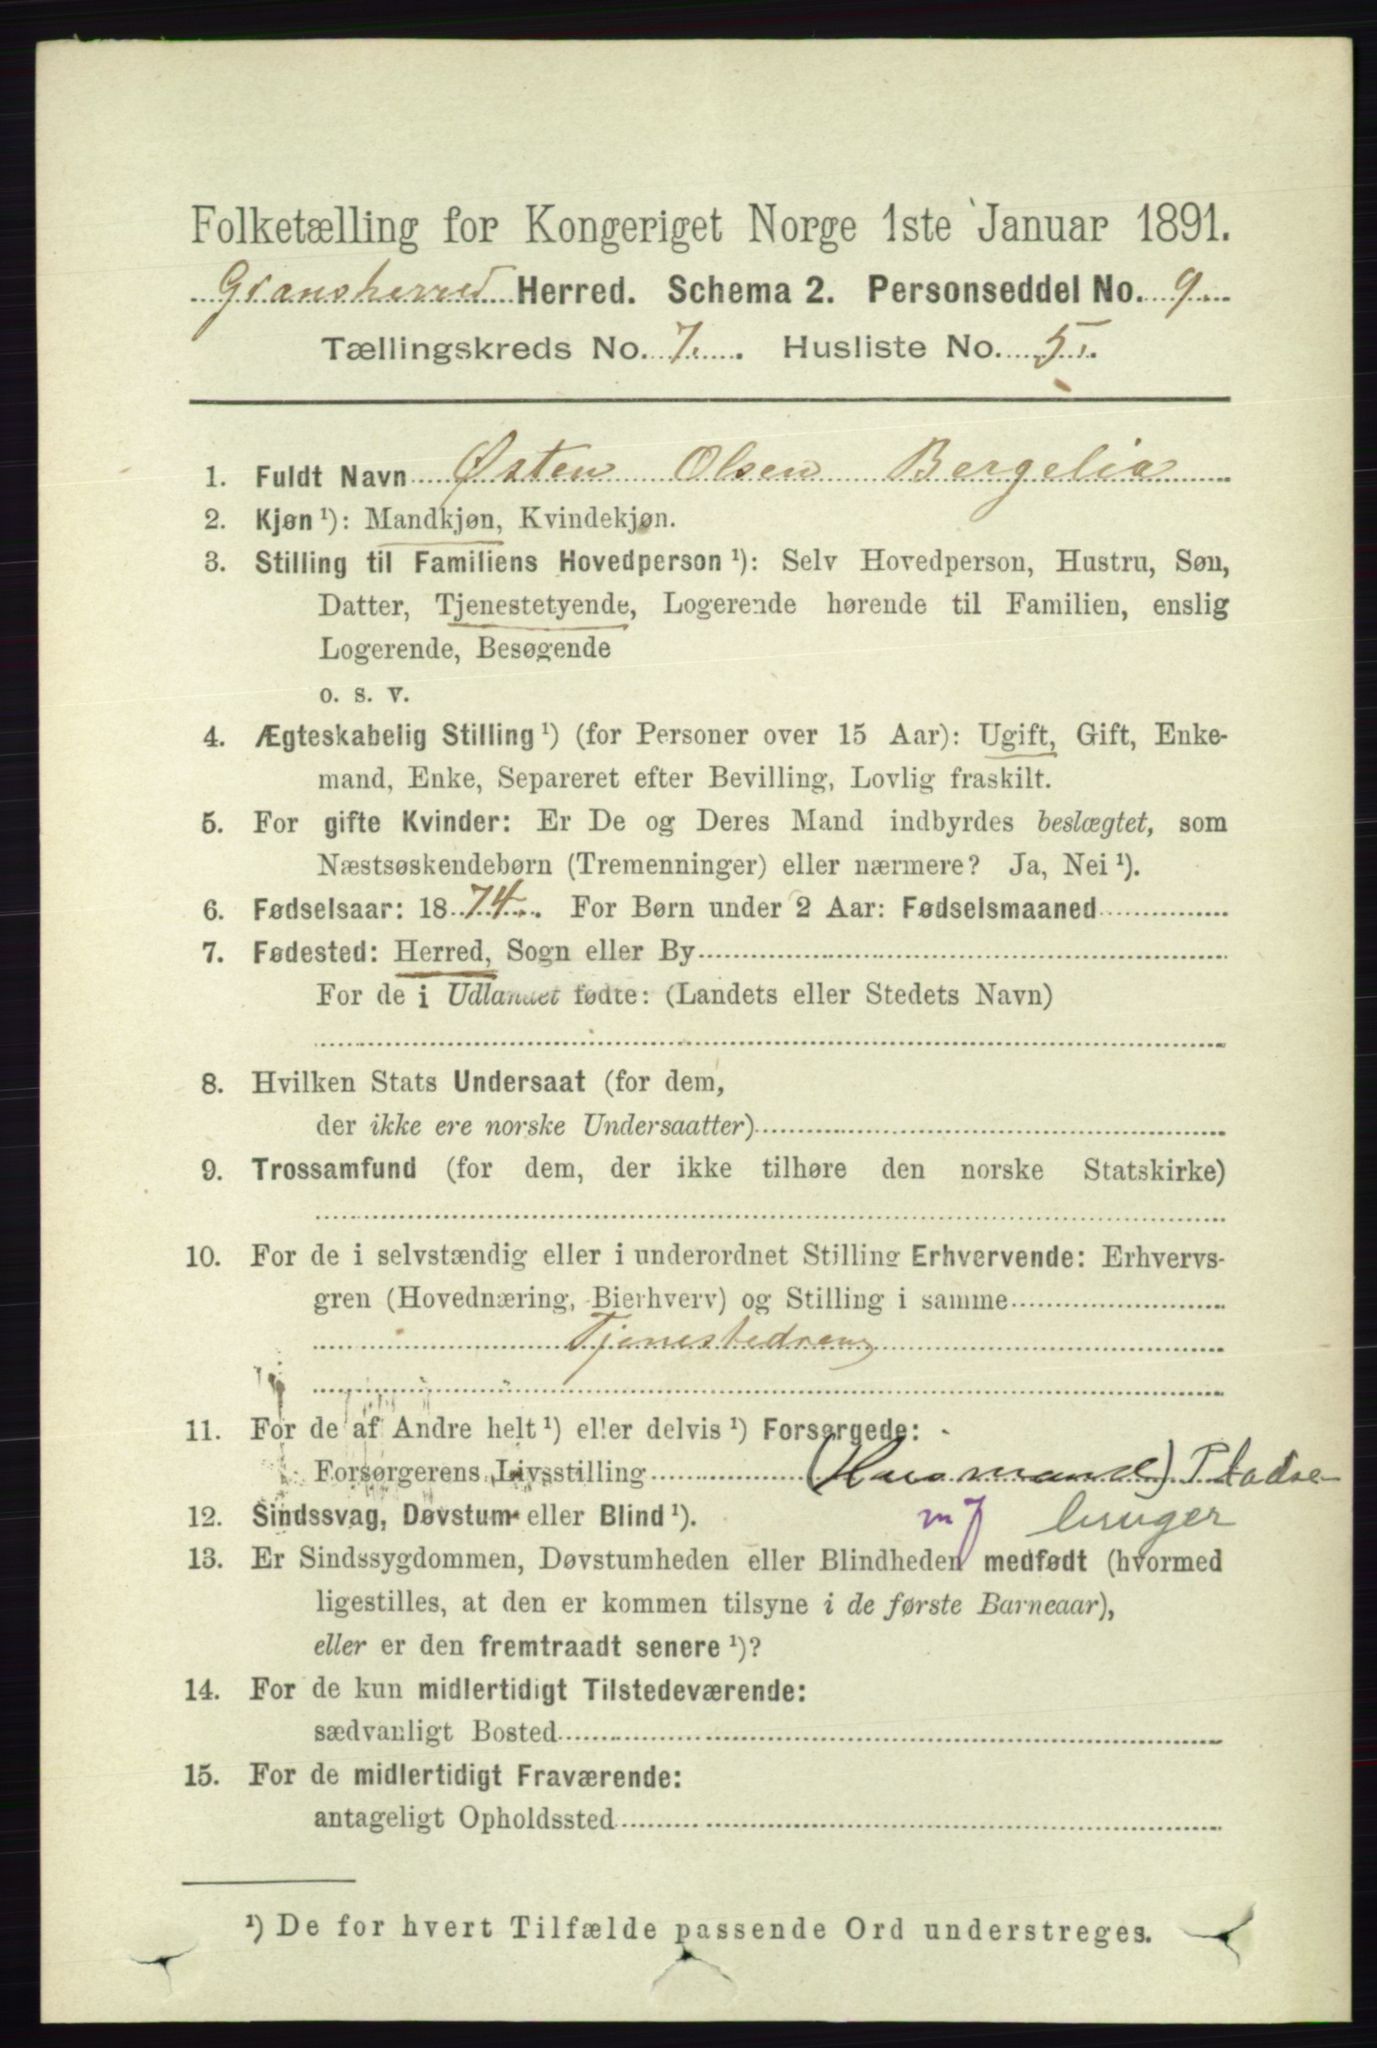 Folketælling for Kongeriget Norge 1ste Januar 1891.
Gransherred Herred. Schema 2. Personseddel No. 9
Tællingskreds No. 7. Husliste No. 5.
1. Fuldt Navn Østen Olsen Bergelia
2. Kjøn ¹): Mandkjøn, Kvindekjøn.
3. Stilling til Familiens Hovedperson ¹): Selv Hovedperson, Hustru, Søn,
Datter, Tjenestetyende, Logerende hørende til Familien, enslig
Logerende, Besøgende
o. s. v.
4. Ægteskabelig Stilling ¹) (for Personer over 15 Aar): Ugift, Gift, Enke-
mand, Enke, Separeret efter Bevilling, Lovlig fraskilt.
5. For gifte Kvinder: Er De og Deres Mand indbyrdes beslægtet, som
Næstsøskendebørn (Tremenninger) eller nærmere? Ja, Nei ¹).
6. Fødselsaar: 1874. For Børn under 2 Aar: Fødselsmaaned
7. Fødested: Herred, Sogn eller By
For de i Udlandet fødte: (Landets eller Stedets Navn)
8. Hvilken Stats Undersaat (for dem,
der ikke ere norske Undersaatter)
9. Trossamfund (for dem, der ikke tilhøre den norske Statskirke)
10. For de i selvstændig eller i underordnet Stilling Erhvervende: Erhvervs-
gren (Hovednæring, Bierhverv) og Stilling i samme
Tjenestedreng
11. For de af Andre helt ¹) eller delvis ¹) Forsørgede:
Forsørgerens Livsstilling (Husmand) Pladse-
12. Sindssvag, Døvstum eller Blind ¹). bruger
13. Er Sindssygdommen, Døvstumheden eller Blindheden medfødt (hvormed
ligestilles, at den er kommen tilsyne i de første Barneaar),
eller er den fremtraadt senere ¹)?
14. For de kun midlertidigt Tilstedeværende:
sædvanligt Bosted
15. For de midlertidigt Fraværende:
antageligt Opholdssted
¹) De for hvert Tilfælde passende Ord understreges.